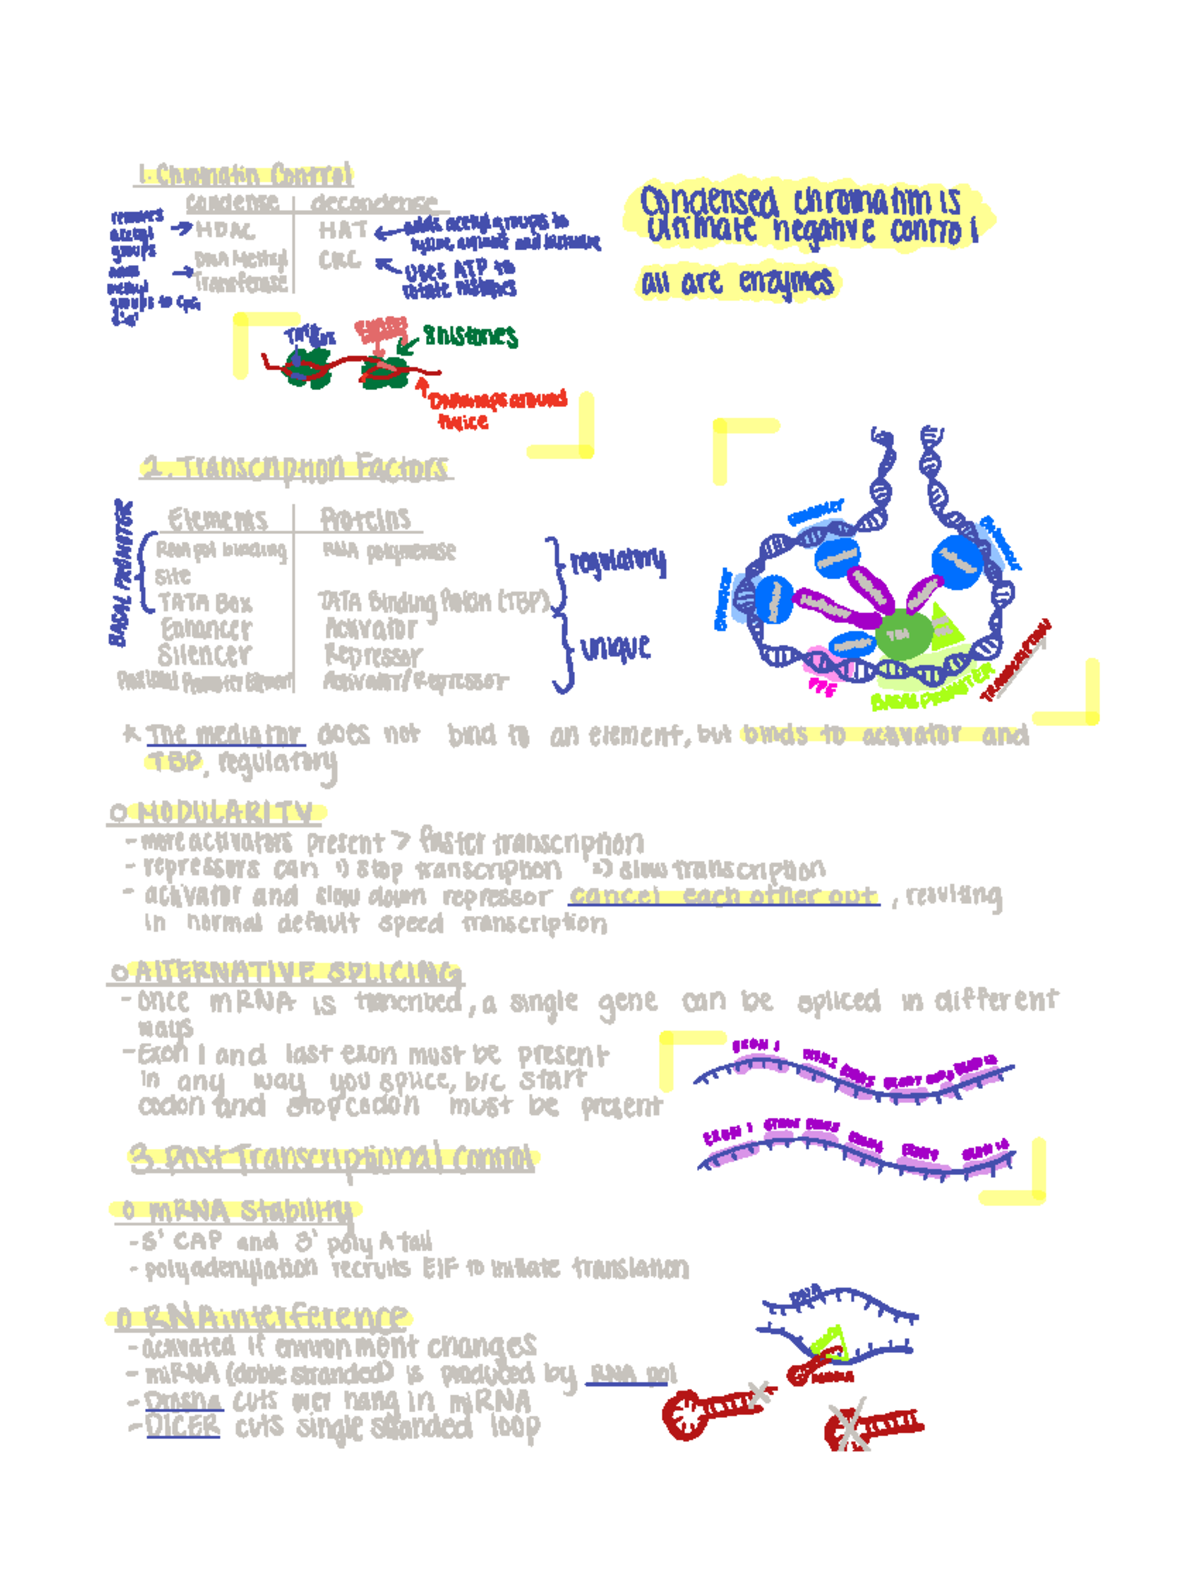 1. Chromatin Control
condense decondense
removes acetyl groups → HDAC HAT ← adds acetyl groups to
lysine, arginine and histidine
adds methyl groups to CpG → DNA Methyl Transferase CRC ← uses ATP to
rotate histones
Condensed chromatin is
ultimate negative control
all are enzymes
TATA BOX
8 histones
DNA wraps around
twice
2. Transcription Factors
BASAL PROMOTOR
Elements Proteins
RNA pol binding RNA polymerase
site
TATA Box TATA Binding Protein (TBP)
Enhancer Activator
Silencer Repressor
Proximal Promoter Element Activator/Repressor
regulatory
unique
Enhancer
Enhancer
Enhancer
TBP
PPE
BASAL PROMOTER
TRANSCRIPTION
* The mediator does not bind to an element, but binds to activator and
TBP, regulatory
o MODULARITY
- more activators present > faster transcription
- repressors can 1) stop transcription 2) slow transcription
- activator and slow down repressor cancel each other out, resulting
in normal default speed transcription
o ALTERNATIVE SPLICING
- once mRNA is trancribed, a single gene can be spliced in different
ways
- Exon 1 and last exon must be present
in any way you splice, b/c start
codon and stop codon must be present
EXON 1
EXON 1
3. Post Transcriptional Control
o mRNA Stability
- 5' CAP and 3' poly A tail
- polyadenylation recruits EIF to initiate translation
o RNA interference
- activated if environment changes
- miRNA (doble stranded) is produced by RNA pol
- Drosha cuts over hang in miRNA
- DICER cuts single stranded loop
DNA